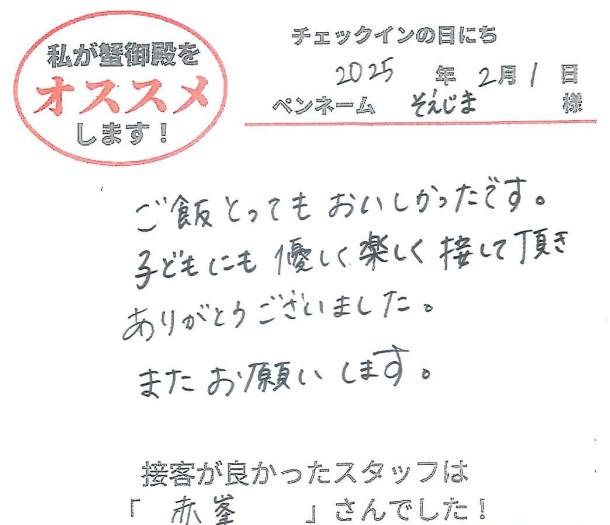 私が蟹御殿を
オススメ
します！
チェックインの日にち
2025 年 2月 1 日
ペンネーム そえじま 様
ご飯とってもおいしかったです。
子どもにも優しく楽しく接して頂き
ありがとうございました。
またお願いします。
接客が良かったスタッフは
「 赤峯 」さんでした！